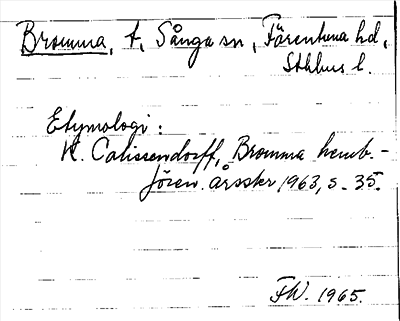 Bromma, t, Sånga sn, Färentuna hd,
Sthlms l.
Etymologi:
K. Calissendorff, Bromma hemb.-
fören. årsskr 1963, s. 35.
FW. 1965.